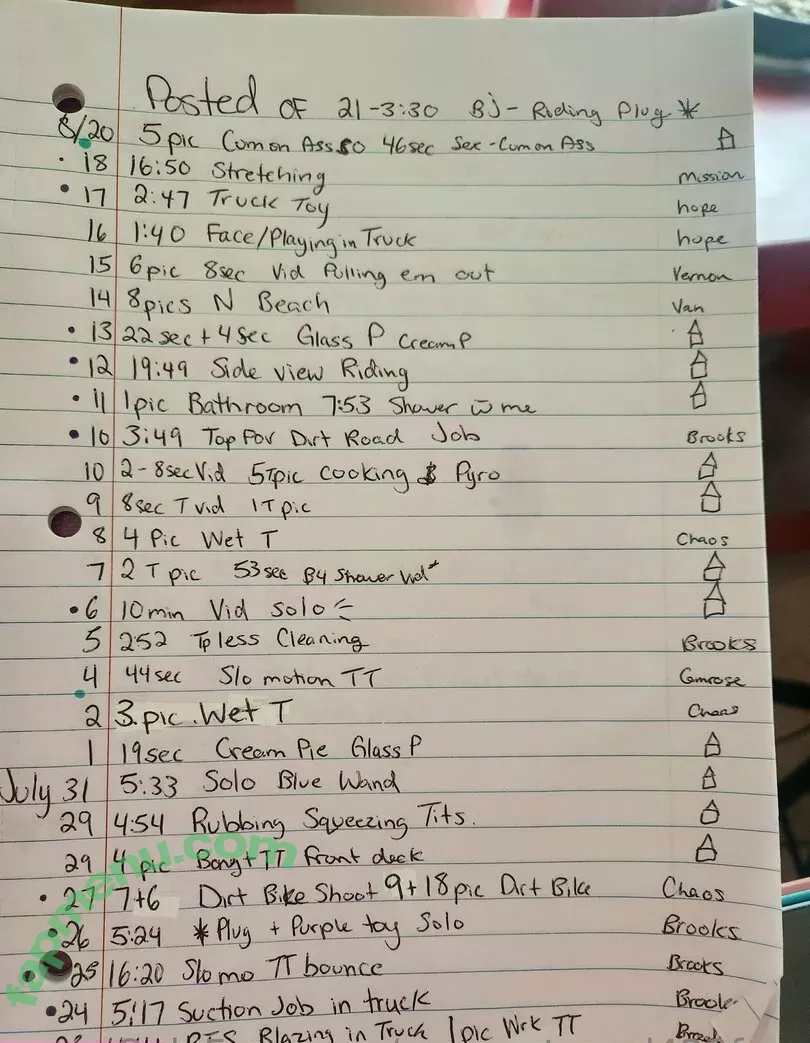 Posted OF 21-3:30 BJ - Riding Plug *
8/20 5pic Cum on Ass 46sec Sex - Cum on Ass
• 18 16:50 Stretching Mission
• 17 2:47 Truck Toy hope
16 1:40 Face/Playing in Truck hope
15 6pic 8sec Vid Pulling em out Vernon
14 8pics N Beach Van
• 13 22sec + 4sec Glass P CreamP
• 12 19:49 Side view Riding
• 11 1pic Bathroom 7:53 Shower w me
• 10 3:49 Top Pov Dirt Road Job Brooks
10 2-8sec Vid 5Tpic Cooking & Pyro
9 8sec T vid 1T pic
8 4 Pic Wet T Chaos
7 2 T pic 53sec B4 Shower Vid*
• 6 10min Vid Solo
5 2:52 Tpless Cleaning Brooks
4 44sec Slo motion TT Camrose
2 3.pic.Wet T Chaos
1 19sec Cream Pie Glass P
July 31 5:33 Solo Blue Wand
29 4:54 Rubbing Squeezing Tits.
29 4 pic Bong + TT front deck
• 27 7+6 Dirt Bike Shoot 9+18pic Dirt Bike Chaos
• 26 5:24 * Plug + Purple toy Solo Brooks
• 25 16:20 Slomo TT bounce Brooks
• 24 5:17 Suction Job in truck Brooks
Blazing in Truck 1pic Wrk TT
topmenu.com